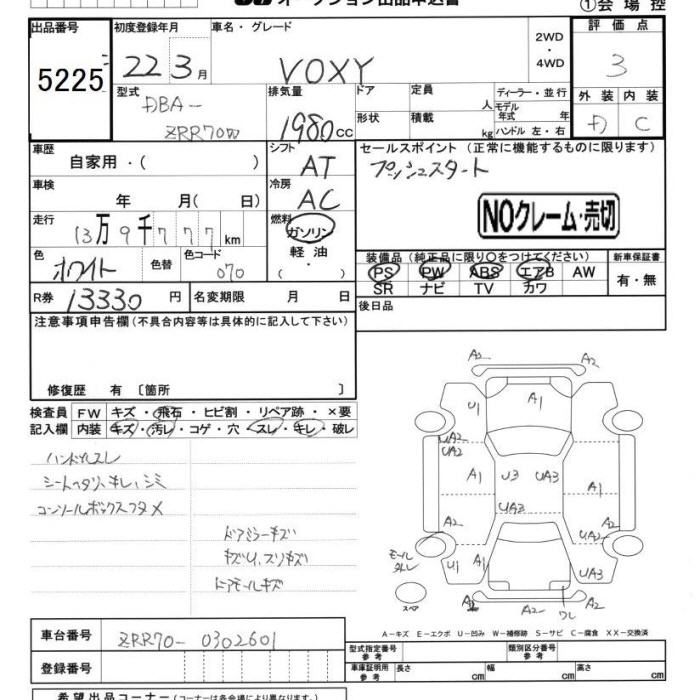 オークション出品申込書
①会場控
出品番号 初度登録年月 車名・グレード 評価点
5225 22 3月 VOXY 2WD・4WD 3
型式 排気量 ドア 定員 人 ディーラー・並行 外装 内装
DBA- ZRR70W 1980cc 形状 積載 kg モデル年式 年 ハンドル 左・右 D C
車歴 自家用・( ) シフト AT セールスポイント (正常に機能するものに限ります)
プッシュスタート
車検 年 月(日) 冷房 AC
NOクレーム・売切
走行 13万9千777km 燃料 ガソリン・軽油・( )
色 ホワイト 色替 色コード 070
装備品(純正品に限り○をつけてください) 新車保証書
PS PW ABS エアB AW 有・無
SR ナビ TV カワ
R券 13330円 名変期限 月 日 後日品
注意事項申告欄(不具合内容等は具体的に記入して下さい)
修復歴 有 〔箇所 〕
検査員 FW キズ・飛石・ヒビ割・リペア跡・×要
記入欄 内装 キズ・汚レ・コゲ・穴・スレ・キレ・破レ
ハンドルスレ
シートヘタリ、キレ、シミ
コンソールボックスフタメ
ドアミラーキズ
キズU、スリキズ
ドアモールキズ
A2 A2
U1 A1 A1
UA2 UA2 A2
A1 U3 UA3 A1
UA3
A2 UA2 A2
モールハズレ U1 A1 UA3
スペア A2 A2 ワレ A2
A-キズ E-エクボ U-凹み W-補修跡 S-サビ C-腐食 XX-交換済
車台番号 ZRR70-0302601
型式指定番号 参考 類別区分番号 参考
登録番号 車庫証明用 参考 長さ cm 幅 cm 高さ cm
希望出品コーナー(コーナーは各会場により異なります。)